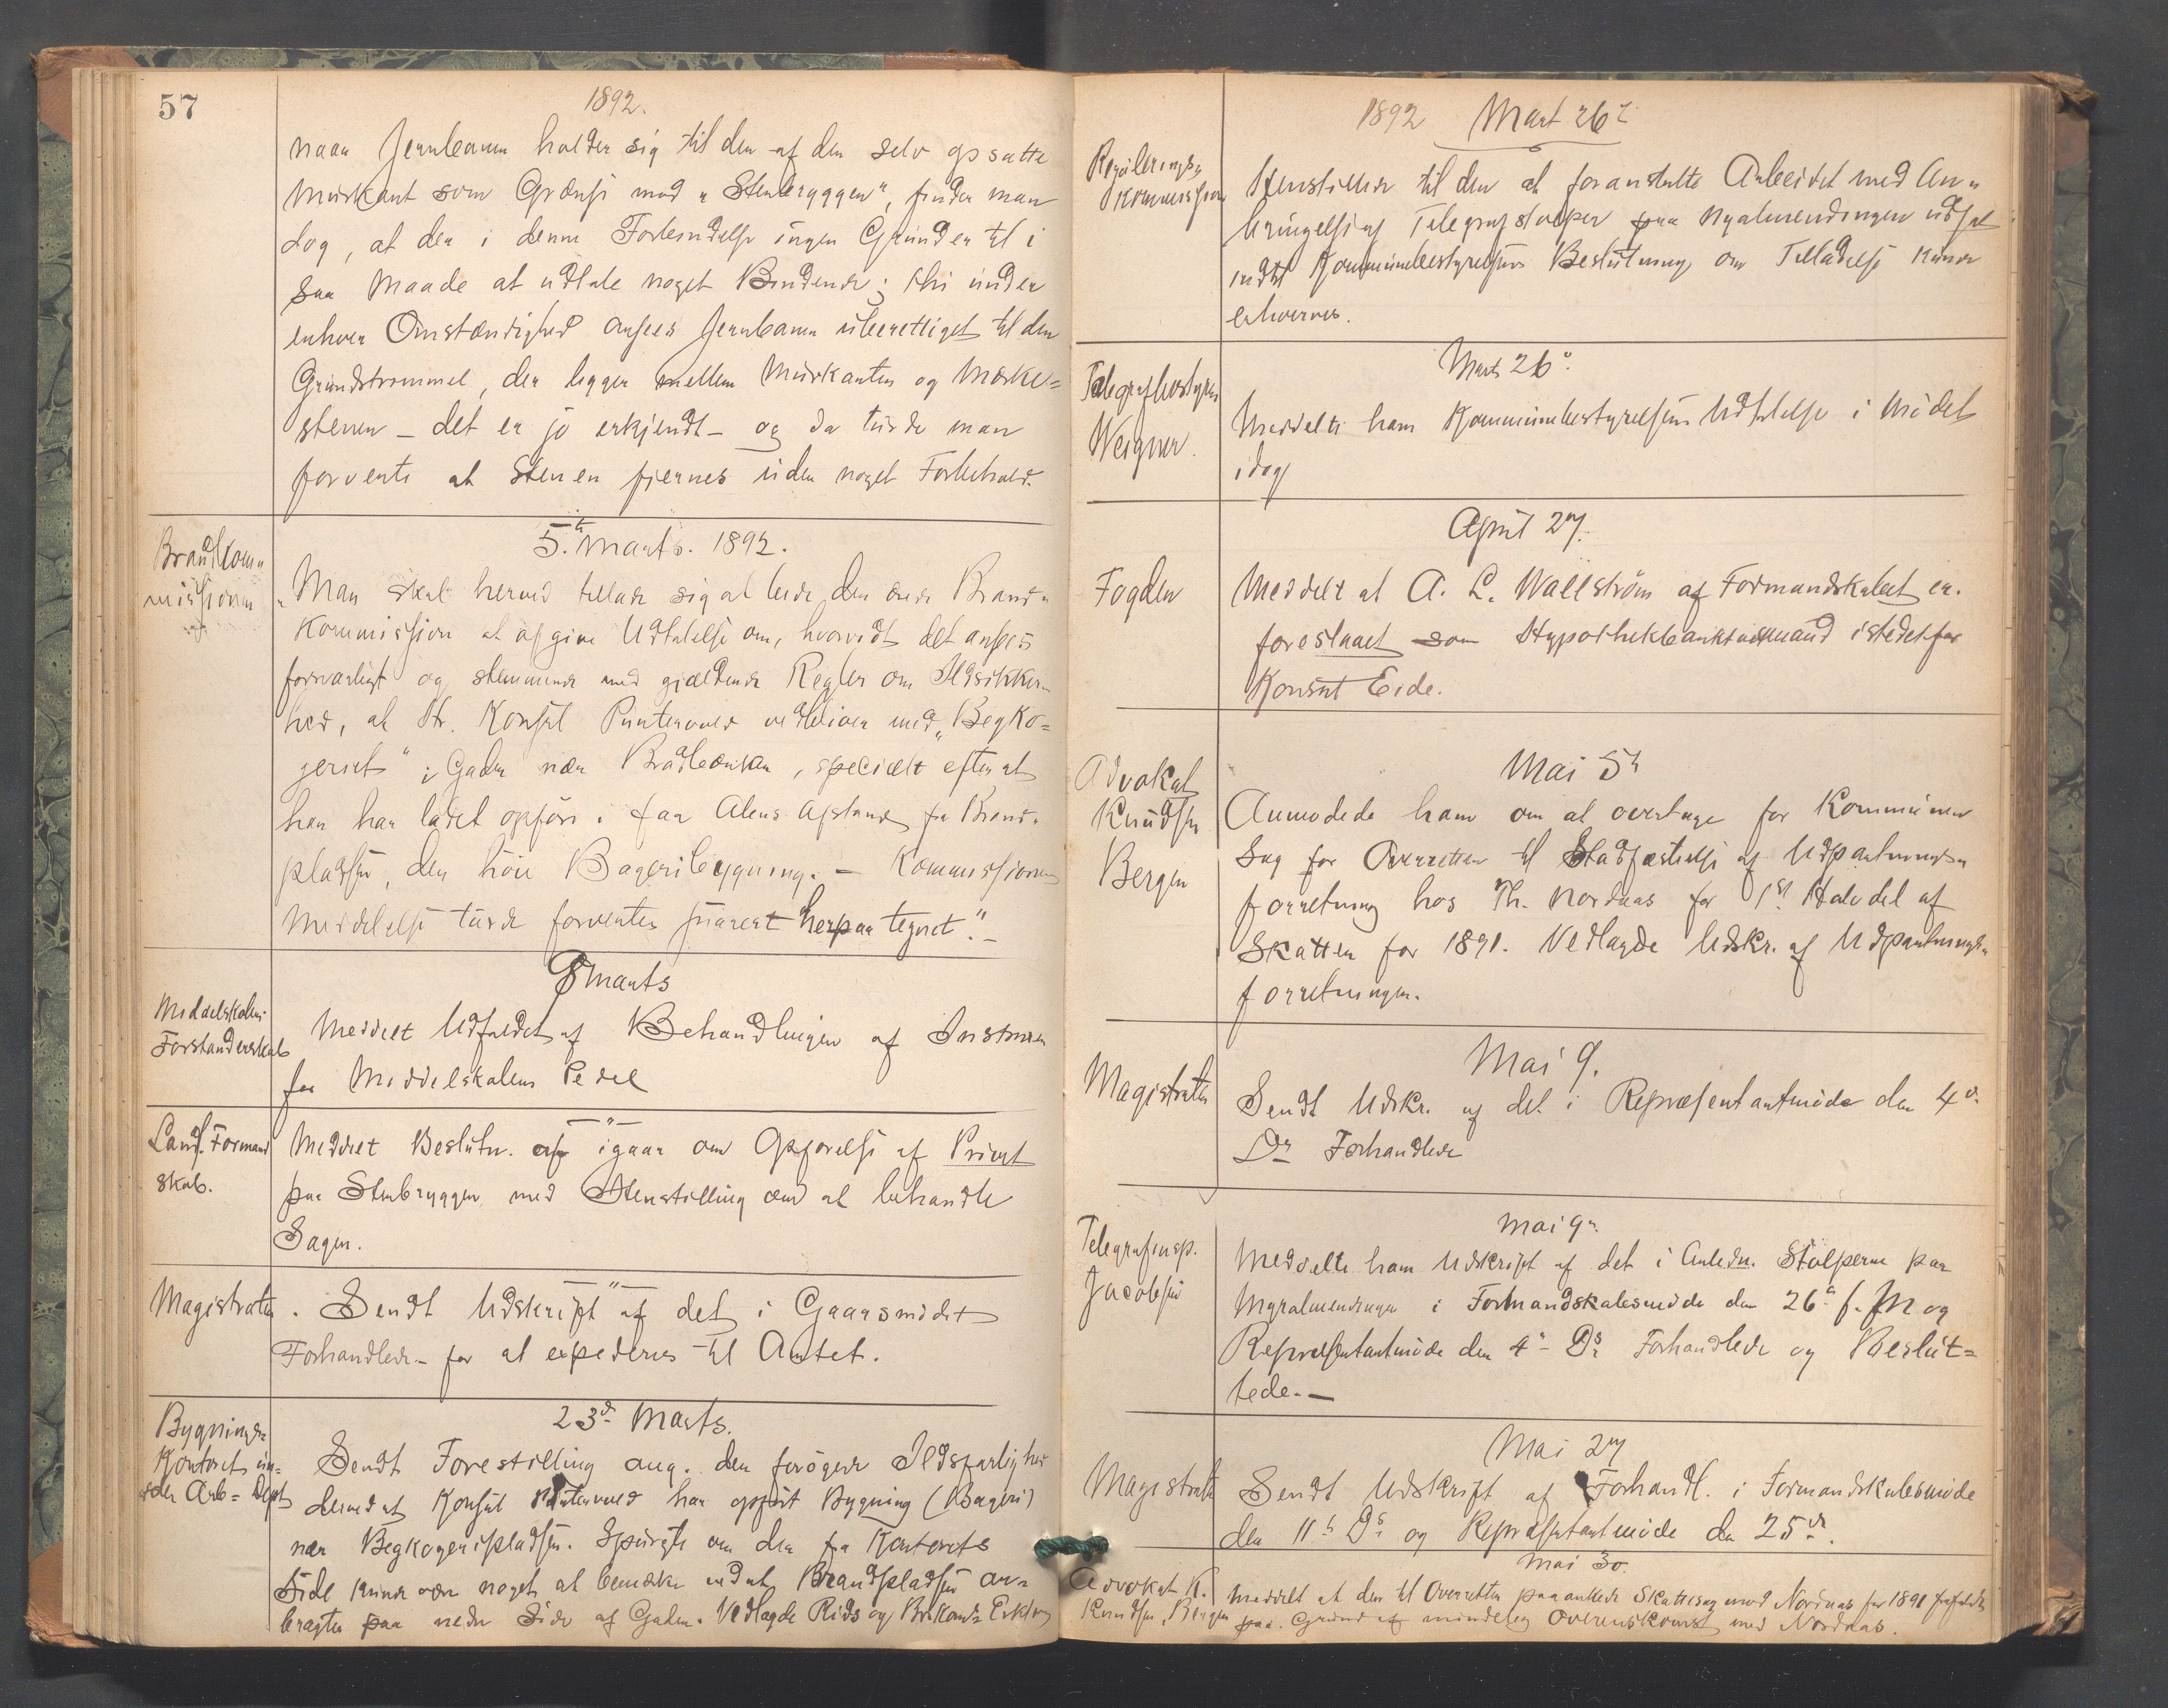 57
1892.
naar Jernbanen holder sig til den af den selv opsatte
Murkant som Grænse mod "Stenbryggen", finder man
dog, at der i denne Forbindelse ingen Grunder til i
saa Maade at udtale noget Bindende; thi under
enhver Omstændighed ansees Jernbanen uberettiget til den
Grundstrimmel, der ligger mellem Murkanten og Mærke=
stenen - det er jo erkjendt - og da turde man
forvente at Stenen fjernes uden noget Forbehold.
Brandkom-
missionen
5. Marts. 1892.
"Man skal herved tillade sig at bede den ærede Brand-
Kommission at afgive Udtalelse om, hvorvidt det ansees
forsvarligt og stemmende med gjældende Regler om Ildsikker-
hed, at Hr. Konsul Puntervold vedbliver med "Begko=
geriet" i Gaden nær Baadbænken, specielt efterat
han har ladet opføre i faa Alens Afstand fra Brænd-
pladsen, den høie Bageribygning. - Kommissionens
Meddelelse turde forventes snarest herpaa tegnet." -
8 Marts
Middelskolens
Forstanderskab
Meddelt Udfaldet af Behandlingen af Instruxen
for Middelskolens Pedel
Land. Formand
skab.
- " -
Meddelt Beslutn. af igaar om Opførelse af Privet
paa Stenbryggen med Henstilling om at behandle
Sagen.
Magistraten.
- " -
Sendt Udskrift af det i Gaarsmødet
Forhandlede - for at expederes til Amtet.
Bygnings-
Kontoret un=
der Arb= Dept
23d Marts.
Sendt Forestilling ang. den forøgede Ildsfarlighed
derved at Konsul Puntervold har opført Bygning (Bageri)
nær Begkogeripladsen. Spurgte om der fra Kontorets
Side kunde være noget at bemærke ved at Brændpladsen an-
bragtes paa nedre Side af Gaden. Vedlagde Rids og Br.Komms Erklæring
1892 Mart 26
Regulerings-
kommission
Henstillede til den at foranstalte Arbeidet med An-
bringelse af Telegrafstolper paa Myralmendingen udsat
indtil Kommunebestyrelsens Beslutning om Tilladelse kunde
erhverves.
Telegrafbestyrer
Weigner.
Marts 26.
Meddelte ham Kommunebestyrelsens Udtalelse i Mødet
idag
Fogden
April 27.
Meddelt at A. L. Wallstrøm af Formandskabet er
foreslaaet som Hypothekbanktaxmand istedetfor
Konsul Eide.
Advokat
Knudsen
Bergen
Mai 5
Anmodede ham om at overtage for Kommunen
Sag for Overretten til Stadfæstelse af Udpantnings-
forretning hos Th. Nordaas for 1st Halvdel af
Skatten for 1891. Vedlagde Udskr. af Udpantnings-
forretningen.
Magistraten
Mai 9.
Sendt Udskr. af det i Repræsentantmøde den 4d.
Ds Forhandlede
Telegrafinsp.
Jacobsen
Mai 9.
Meddelte ham Udskrift af det i Anledn. Stolperne paa
Myralmendingen i Formandskabsmøde den 26 f. M og
Repræsentantmøde den 4 - Ds Forhandlede og Beslut=
tede. -
Magistrat
Mai 27
Sendt Udskrift af Forhandl. i Formandskabsmøde
den 11 Ds og Repræsentantmøde den 25d.
Mai 30.
Advokat K.
Knudsen, Bergen
Meddelt at den til Overretten paaankede Skattesag mod Nordaas for 1891 frafaldes
paa Grund af mindelig Overenskomst med Nordaas.